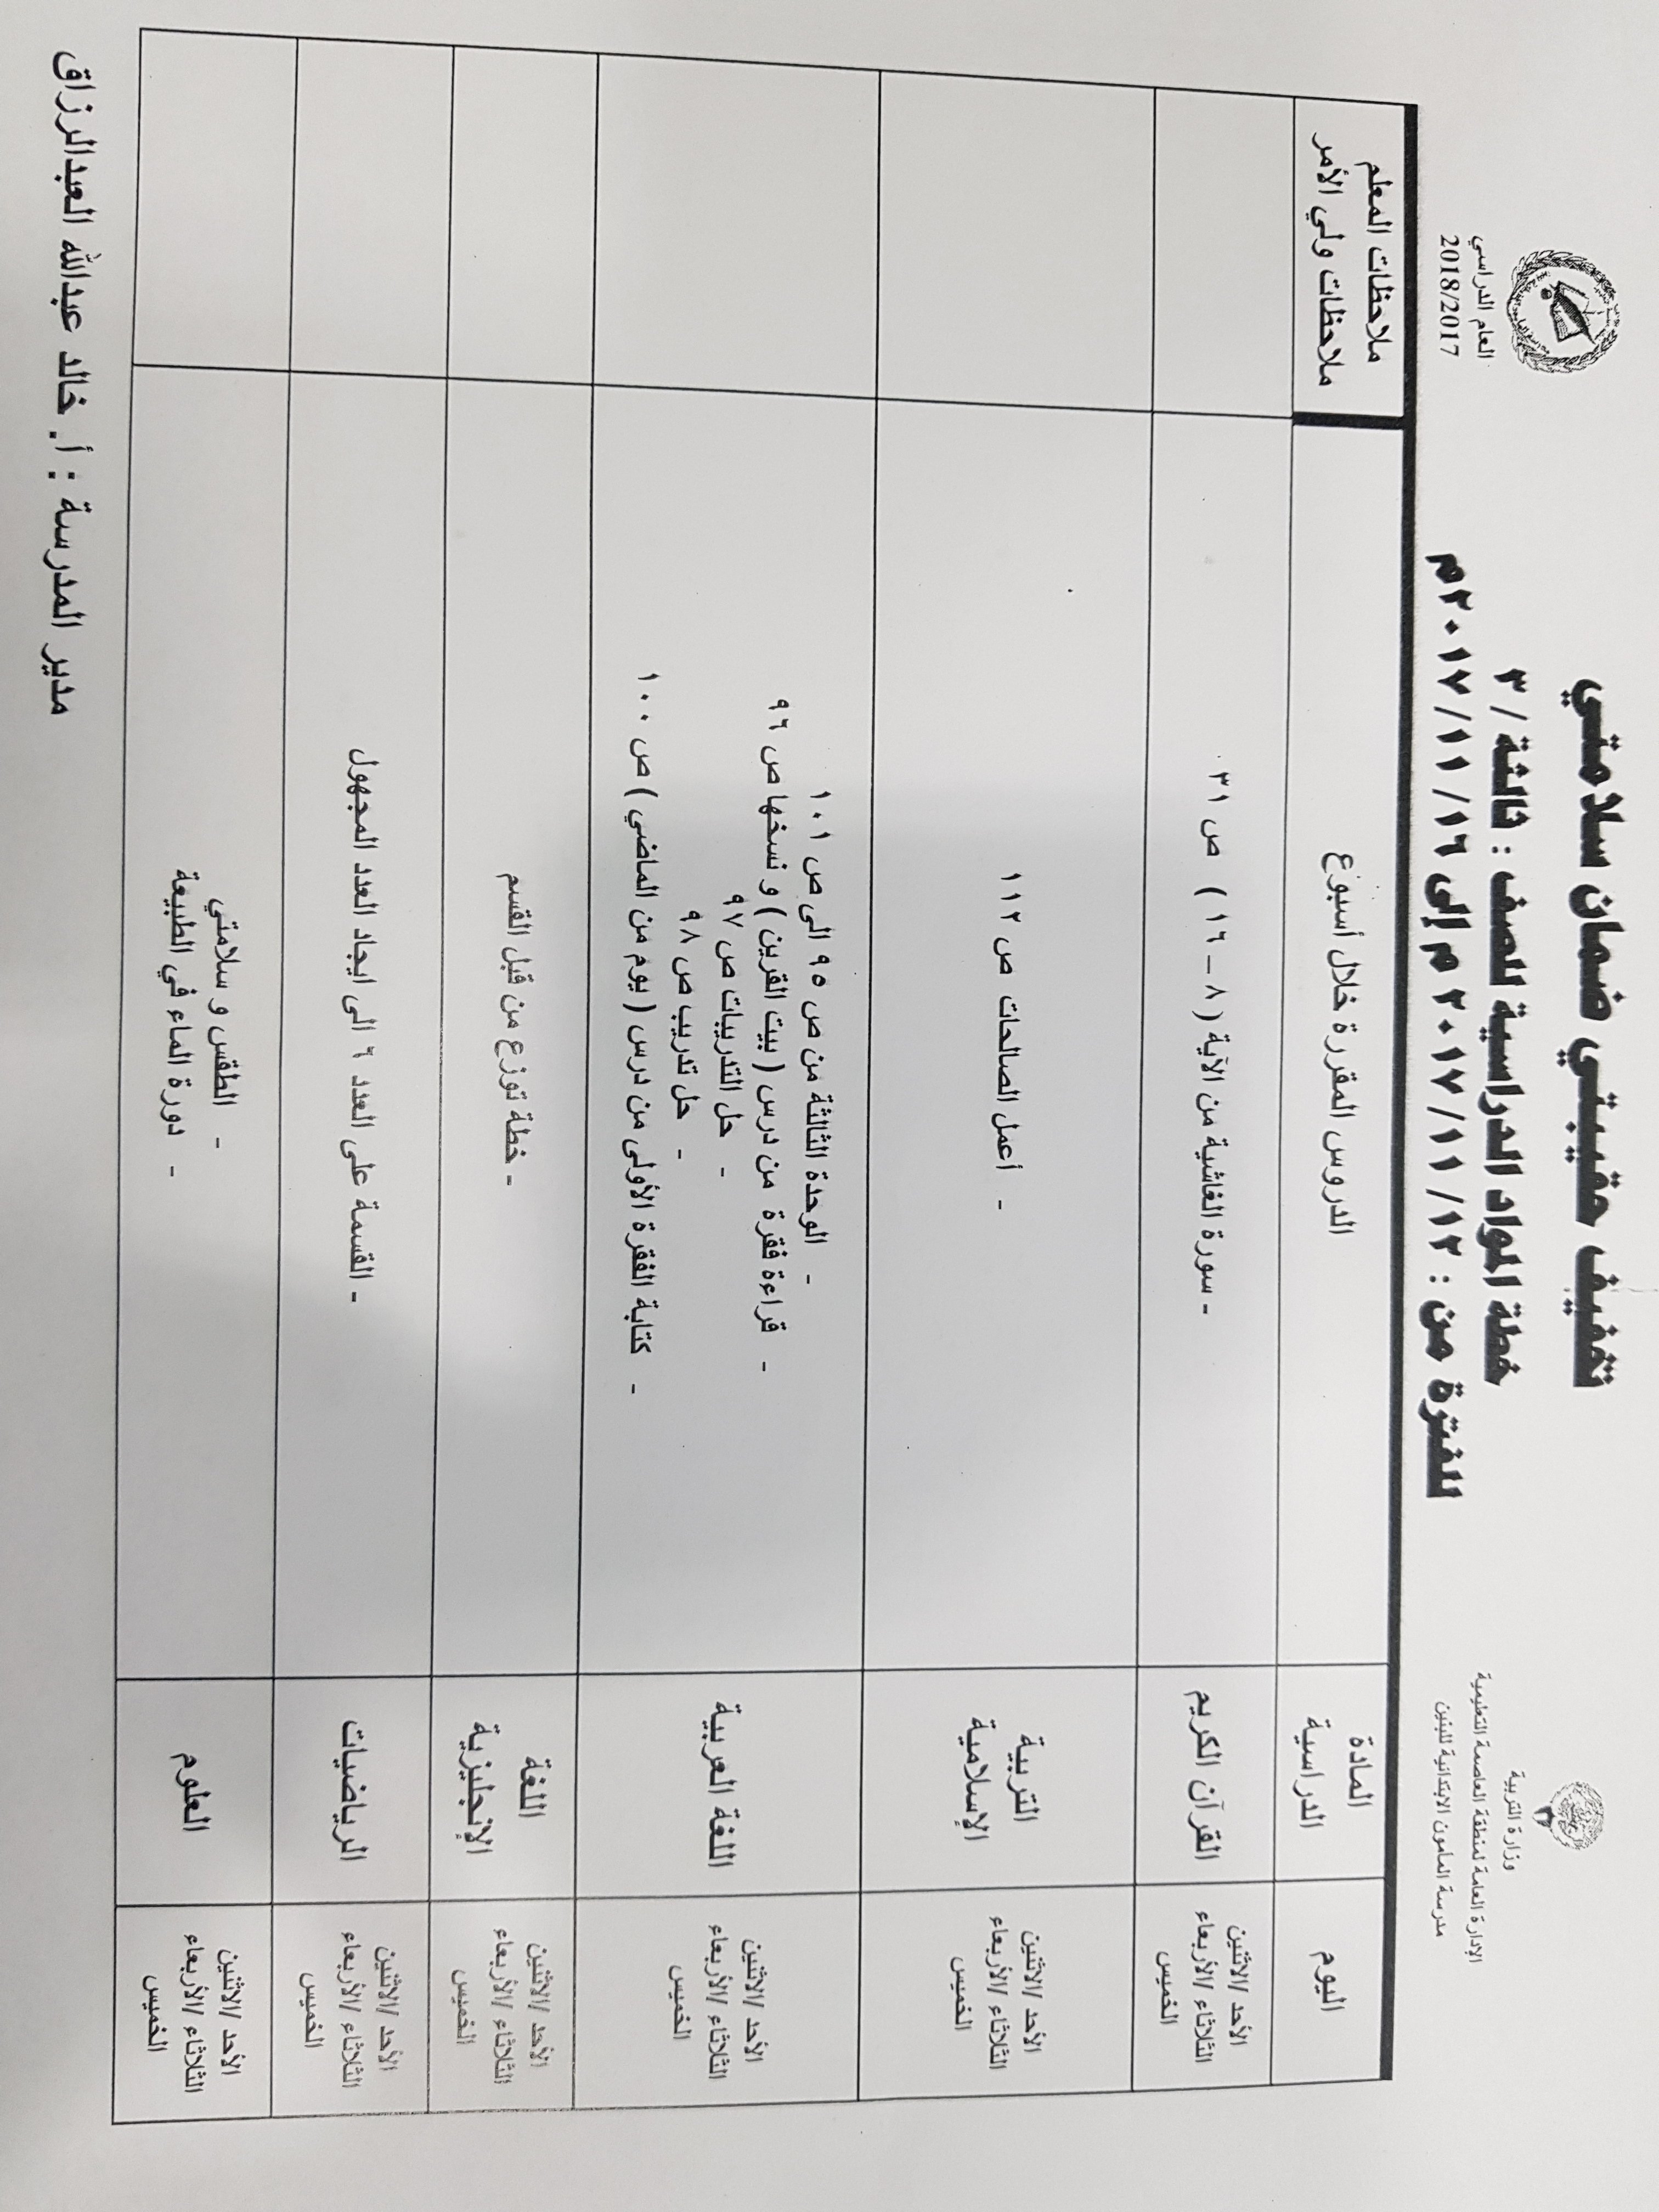 وزارة التربية
الإدارة العامة لمنطقة العاصمة التعليمية
مدرسة المامون الابتدائية للبنين
تخفيف حقيبتي ضمان سلامتي
خطة المواد الدراسية للصف : ثالثة / ٣
للفترة من : ١٢ / ١١ / ٢٠١٧ م إلى ١٦ / ١١ / ٢٠١٧م
العام الدراسي
2018/2017
اليوم
المادة
الدراسية
الدروس المقررة خلال أسبوع
ملاحظات المعلم
ملاحظات ولي الأمر
الأحد /الاثنين
الثلاثاء /الأربعاء
الخميس
القرآن الكريم
- سورة الغاشية من الآية ( ٨ – ١٦ ) ص ٣١ .
الأحد /الاثنين
الثلاثاء /الأربعاء
الخميس
التربية
الإسلامية
- أعمل الصالحات ص ١١٢
الأحد /الاثنين
الثلاثاء /الأربعاء
الخميس
اللغة العربية
- الوحدة الثالثة من ص ٩٥ الى ص ١٠١
- قراءة فقرة من درس ( بيت القرين ) و نسخها ص ٩٦
- حل التدريبات ص ٩٧
- حل تدريب ص ٩٨
- كتابة الفقرة الأولى من درس ( يوم من الماضي ) ص ١٠٠
الأحد /الاثنين
الثلاثاء /الأربعاء
الخميس
اللغة
الإنجليزية
- خطة توزع من قبل القسم
الأحد /الاثنين
الثلاثاء /الأربعاء
الخميس
الرياضيات
- القسمة على العدد ٦ الى ايجاد العدد المجهول
الأحد /الاثنين
الثلاثاء /الأربعاء
الخميس
العلوم
- الطقس و سلامتي
- دورة الماء في الطبيعة
مدير المدرسة : أ. خالد عبدالله العبدالرزاق